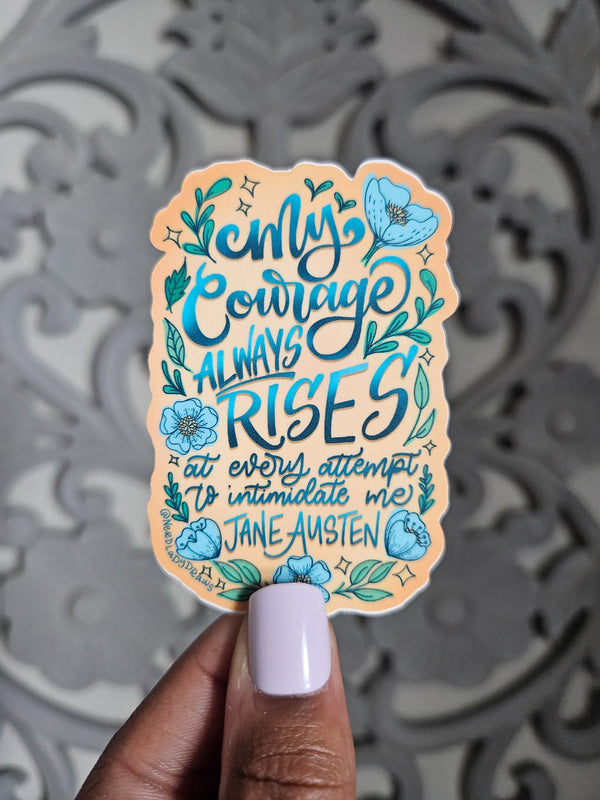 My
Courage
ALWAYS
RISES
at every attempt
to intimidate me
JANE AUSTEN
@NerdLadyDraws